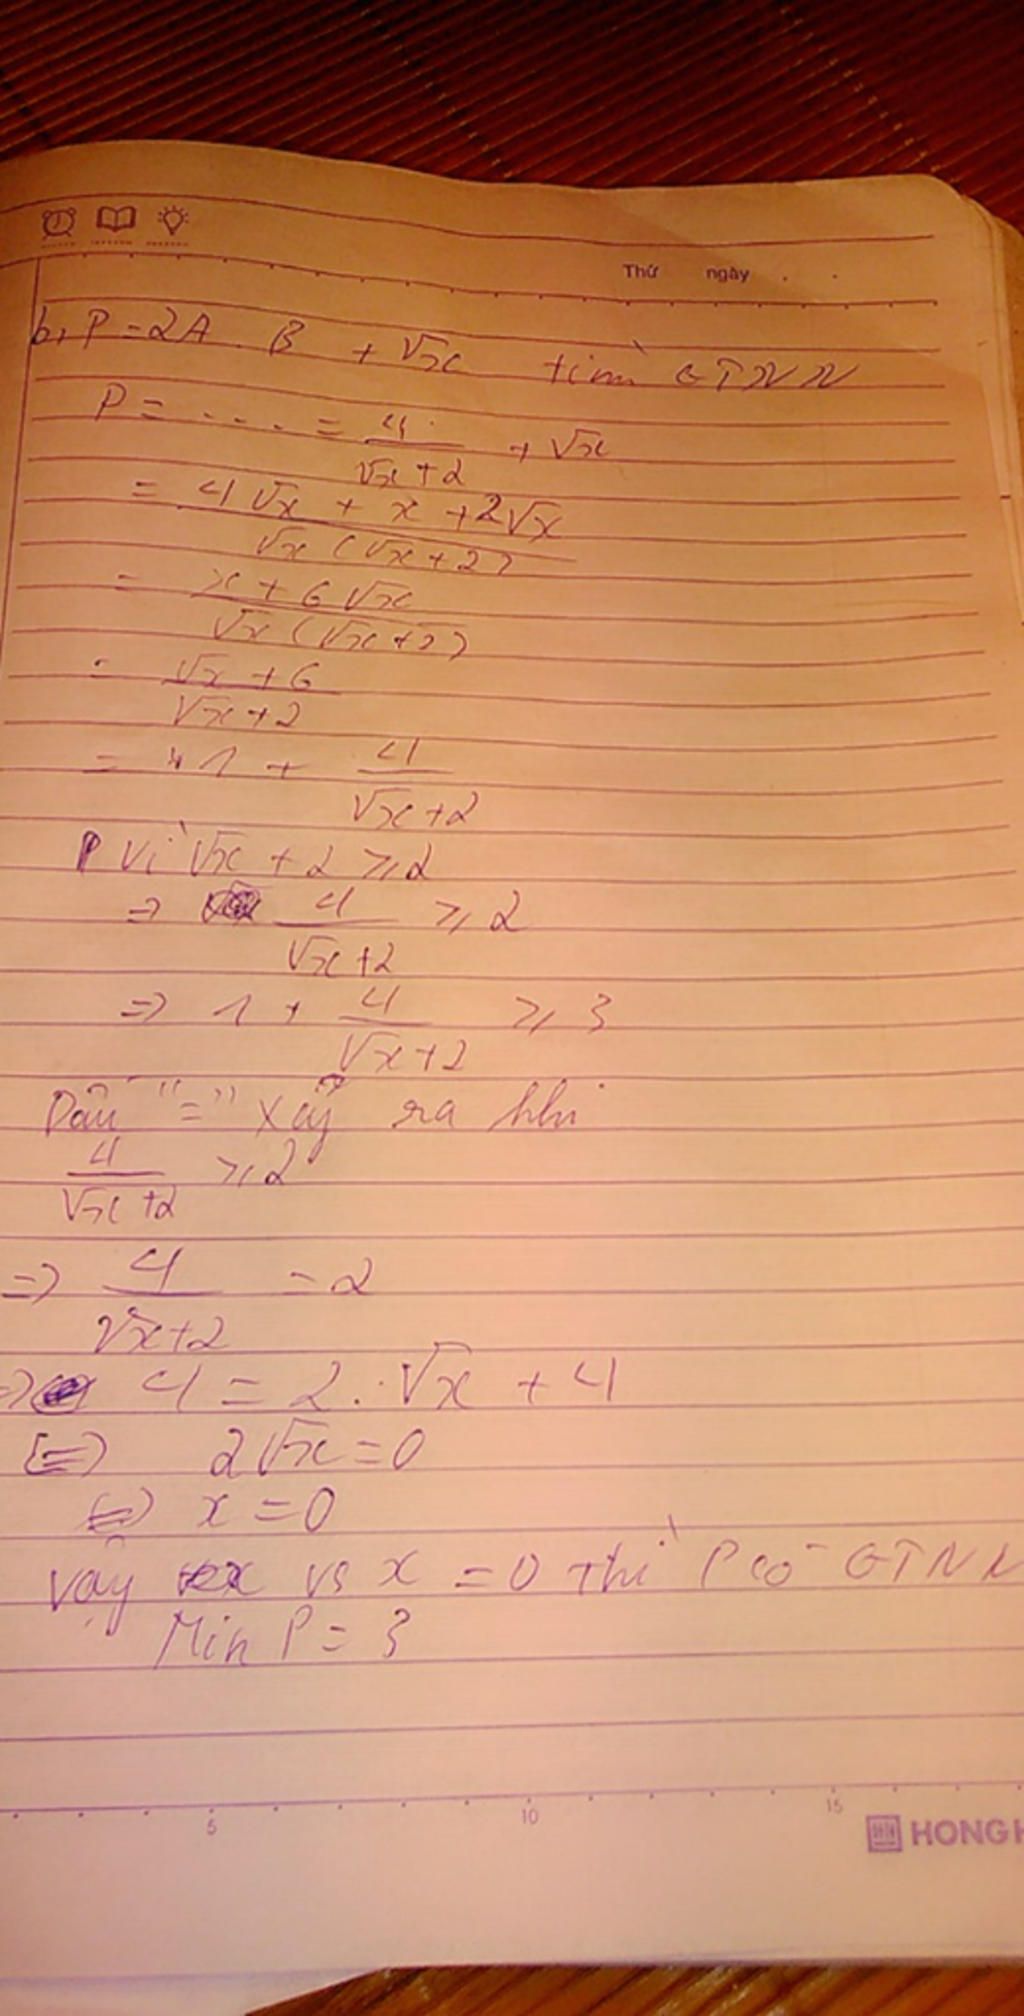 Thứ ngày
b, P = 2A . B + √x tìm GTNN
P = .... = 4/(√x + 2) + √x
= (4√x + x + 2√x)/(√x (√x + 2))
= (x + 6√x)/(√x (√x + 2))
= (√x + 6)/(√x + 2)
= 1 + 4/(√x + 2)
Vì √x + 2 ≥ 2
=> 4/(√x + 2) ≥ 2
=> 1 + 4/(√x + 2) ≥ 3
Dấu "=" xảy ra khi
4/(√x + 2) ≥ 2
=> 4/(√x + 2) = 2
=> 4 = 2.√x + 4
<=> 2√x = 0
<=> x = 0
vậy vs x = 0 thì P có GTNN
Min P = 3
5 10 15
HONG H